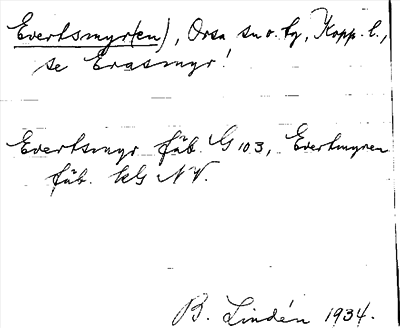 Evertsmyr(en), Orsa sn o. tg, Kopp. l.,
se Erasmyr!
Evertsmyr fäb. G 103, Evertmyren
fäb. kG NV.
B. Lindén 1934.